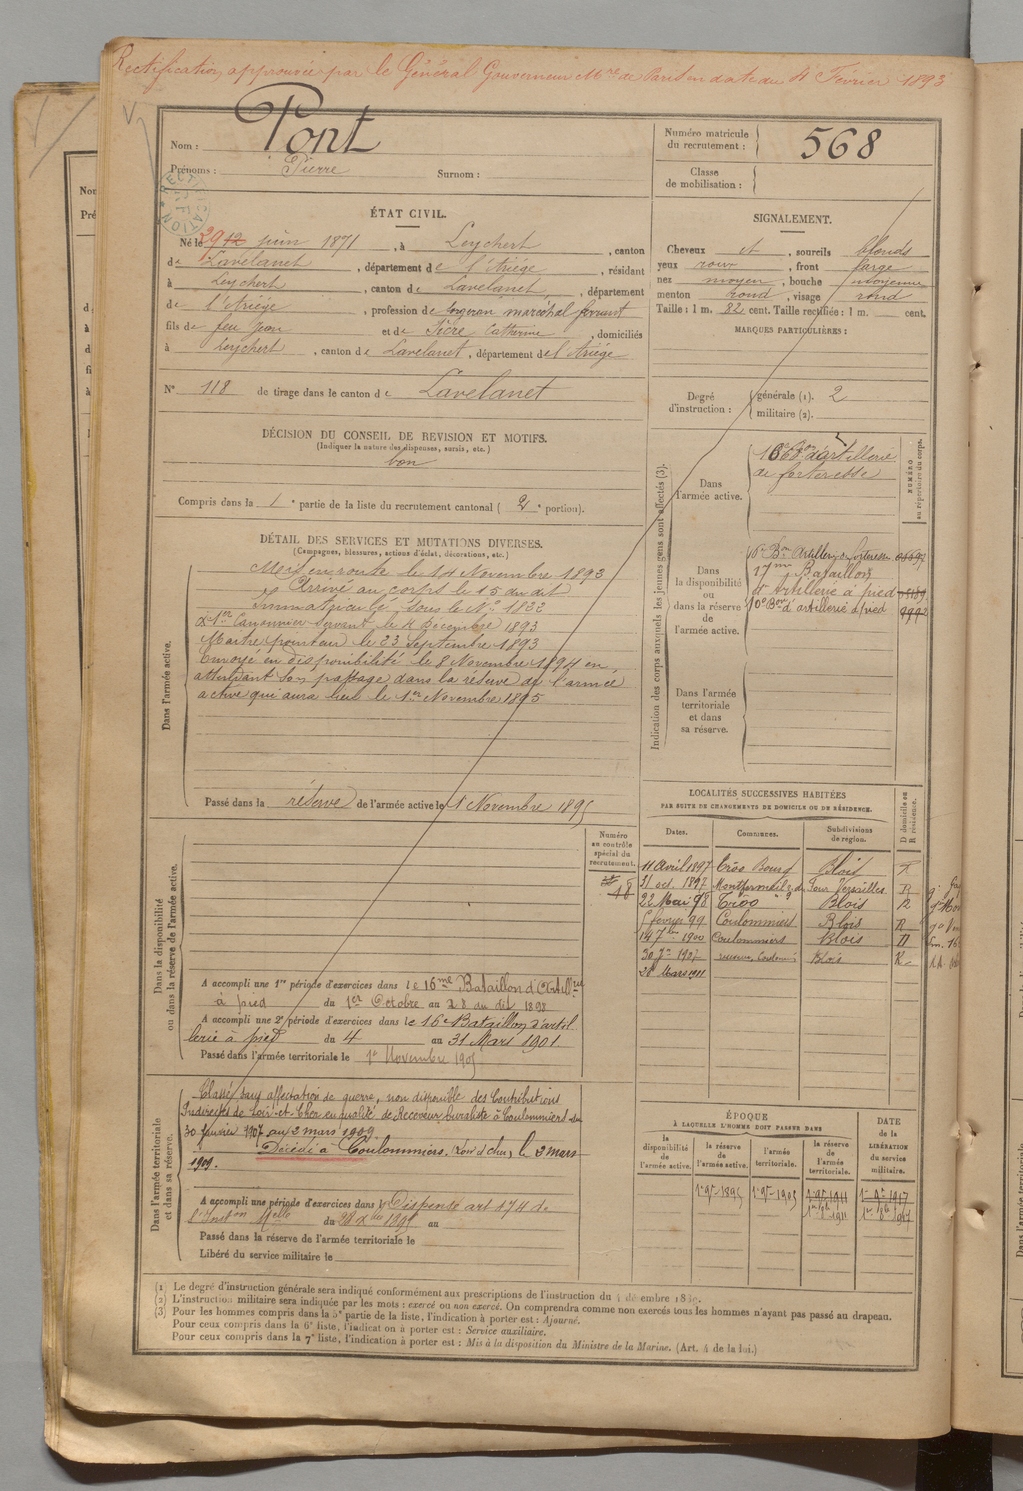 Rectification approuvée par le Général Gouverneur Mre de Paris en date du 4 Février 1893
Nom : Pont
Prénoms : Pierre Surnom :
Numéro matricule du recrutement : 568
Classe de mobilisation :
RECTIFICATION
ÉTAT CIVIL.
Né le 29 12 juin 1871, à Leychert, canton
de Lavelanet, département de l'Ariége, résidant
à Leychert, canton de Lavelanet, département
de l'Ariége, profession de forgeron maréchal ferrant
fils de feu Jean et de Sicre Catherine, domiciliés
à Leychert, canton de Lavelanet, département de l'Ariége
N° 118 de tirage dans le canton de Lavelanet
DÉCISION DU CONSEIL DE REVISION ET MOTIFS.
(Indiquer la nature des dispenses, sursis, etc.)
bon
Compris dans la 1e partie de la liste du recrutement cantonal (2e portion).
SIGNALEMENT.
Cheveux et, sourcils blonds
yeux roux, front large
nez moyen, bouche moyenne
menton rond, visage rond
Taille : 1 m. 82 cent. Taille rectifiée : 1 m. cent.
MARQUES PARTICULIÈRES :
Degré d'instruction : générale (1). 2
militaire (2).
DÉTAIL DES SERVICES ET MUTATIONS DIVERSES.
(Campagnes, blessures, actions d'éclat, décorations, etc.)
Dans l'armée active.
Mis en route le 14 Novembre 1892
Arrivé au corps le 15 du dit
Immatriculé sous le N° 1822
1er Canonnier servant le 4 Décembre 1893
Maitre pointeur le 23 Septembre 1893
Envoyé en disponibilité le 8 Novembre 1894 en
attendant son passage dans la réserve de l'armée
active qui aura lieu le 1er Novembre 1895
Passé dans la réserve de l'armée active le 1 Novembre 1895
Indication des corps auxquels les jeunes gens sont affectés (3).
NUMÉRO au répertoire du corps.
Dans l'armée active.
16e Bon d'artillerie
de forteresse
Dans la disponibilité ou dans la réserve de l'armée active.
16e Bon Artillerie de forteresse
17me Bataillon
d'Artillerie à pied
10e Bon d'artillerie à pied
Dans l'armée territoriale et dans sa réserve.
LOCALITÉS SUCCESSIVES HABITÉES
PAR SUITE DE CHANGEMENTS DE DOMICILE OU DE RÉSIDENCE.
Dates. Communes. Subdivisions de région. D domicile ou R résidence.
11 Avril 1897 Trôo Bourg Blois R
31 oct. 1897 Montfermeil Versailles R
22 Mai 98 Trôo Blois R
5 février 99 Coulommiers Blois R
14 7bre 1900 Coulommiers Blois R
30 Jer 1907 Coulommiers Blois R
28 Mars 1911
Dans la disponibilité ou dans la réserve de l'armée active.
Numéro au contrôle spécial du recrutement.
18
A accompli une 1re période d'exercices dans le 16me Bataillon d'Artillrie
à pied du 1er Octobre au 28 du dit 1898
A accompli une 2e période d'exercices dans le 16e Bataillon d'artil
lerie à pied du 4 au 31 Mars 1901
Passé dans l'armée territoriale le 1er Novembre 1905
Dans l'armée territoriale et dans sa réserve.
Classé sans affectation de guerre, non disponible des Contributions
Indirectes de Loir-et-Cher en qualité de Receveur buraliste à Coulommiers du
30 janvier 1907 au 2 mars 1909
Décédé à Coulommiers, (Loir et Cher) le 2 mars
1909.
A accompli une période d'exercices dans Dispensé art 174 de
l'Inston Melle du 28 Xbre 1895 au
Passé dans la réserve de l'armée territoriale le
Libéré du service militaire le
ÉPOQUE
À LAQUELLE L'HOMME DOIT PASSER DANS
DATE de la LIBÉRATION du service militaire.
la disponibilité de l'armée active. la réserve de l'armée active. l'armée territoriale. la réserve de l'armée territoriale.
1er 9bre 1895 1er 9bre 1905 1er 9bre 1911 1er 9bre 1917
(1) Le degré d'instruction générale sera indiqué conformément aux prescriptions de l'instruction du 4 décembre 1889.
(2) L'instruction militaire sera indiquée par les mots : exercé ou non exercé. On comprendra comme non exercés tous les hommes n'ayant pas passé au drapeau.
(3) Pour les hommes compris dans la 5e partie de la liste, l'indication à porter est : Ajourné.
Pour ceux compris dans la 6e liste, l'indication à porter est : Service auxiliaire.
Pour ceux compris dans la 7e liste, l'indication à porter est : Mis à la disposition du Ministre de la Marine. (Art. 4 de la loi.)